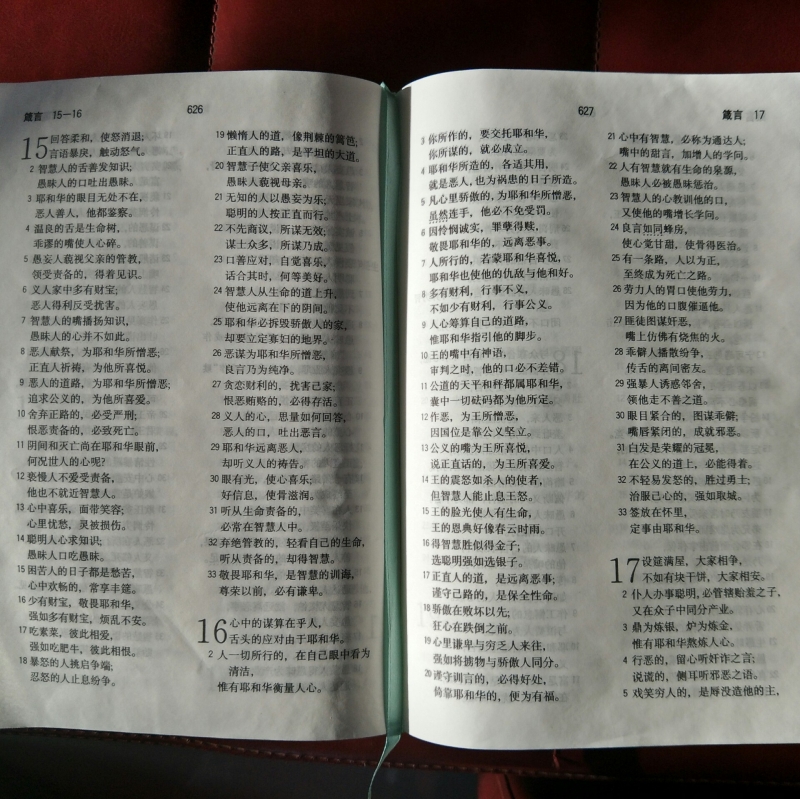 箴言 15—16
626
15 回答柔和，使怒消退；
言语暴戾，触动怒气。
2 智慧人的舌善发知识；
愚昧人的口吐出愚昧。
3 耶和华的眼目无处不在，
恶人善人，他都鉴察。
4 温良的舌是生命树，
乖谬的嘴使人心碎。
5 愚妄人藐视父亲的管教，
领受责备的，得着见识。
6 义人家中多有财宝；
恶人得利反受扰害。
7 智慧人的嘴播扬知识，
愚昧人的心并不如此。
8 恶人献祭，为耶和华所憎恶；
正直人祈祷，为他所喜悦。
9 恶人的道路，为耶和华所憎恶；
追求公义的，为他所喜爱。
10 舍弃正路的，必受严刑；
恨恶责备的，必致死亡。
11 阴间和灭亡尚在耶和华眼前，
何况世人的心呢？
12 亵慢人不爱受责备，
他也不就近智慧人。
13 心中喜乐，面带笑容；
心里忧愁，灵被损伤。
14 聪明人心求知识；
愚昧人口吃愚昧。
15 困苦人的日子都是愁苦，
心中欢畅的，常享丰筵。
16 少有财宝，敬畏耶和华，
强如多有财宝，烦乱不安。
17 吃素菜，彼此相爱，
强如吃肥牛，彼此相恨。
18 暴怒的人挑启争端；
忍怒的人止息纷争。
19 懒惰人的道，像荆棘的篱笆；
正直人的路，是平坦的大道。
20 智慧子使父亲喜乐，
愚昧人藐视母亲。
21 无知的人以愚妄为乐；
聪明的人按正直而行。
22 不先商议，所谋无效；
谋士众多，所谋乃成。
23 口善应对，自觉喜乐，
话合其时，何等美好。
24 智慧人从生命的道上升，
使他远离在下的阴间。
25 耶和华必拆毁骄傲人的家，
却要立定寡妇的地界。
26 恶谋为耶和华所憎恶，
良言乃为纯净。
27 贪恋财利的，扰害己家；
恨恶贿赂的，必得存活。
28 义人的心，思量如何回答，
恶人的口，吐出恶言。
29 耶和华远离恶人，
却听义人的祷告。
30 眼有光，使心喜乐；
好信息，使骨滋润。
31 听从生命责备的，
必常在智慧人中。
32 弃绝管教的，轻看自己的生命，
听从责备的，却得智慧。
33 敬畏耶和华，是智慧的训诲，
尊荣以前，必有谦卑。
16 心中的谋算在乎人，
舌头的应对由于耶和华。
2 人一切所行的，在自己眼中看为
清洁，
惟有耶和华衡量人心。
627
箴言 17
3 你所作的，要交托耶和华，
你所谋的，就必成立。
4 耶和华所造的，各适其用，
就是恶人，也为祸患的日子所造。
5 凡心里骄傲的，为耶和华所憎恶，
虽然连手，他必不免受罚。
6 因怜悯诚实，罪孽得赎，
敬畏耶和华的，远离恶事。
7 人所行的，若蒙耶和华喜悦，
耶和华也使他的仇敌与他和好。
8 多有财利，行事不义，
不如少有财利，行事公义。
9 人心筹算自己的道路，
惟耶和华指引他的脚步。
10 王的嘴中有神语，
审判之时，他的口必不差错。
11 公道的天平和秤都属耶和华，
囊中一切砝码都为他所定。
12 作恶，为王所憎恶，
因国位是靠公义坚立。
13 公义的嘴为王所喜悦，
说正直话的，为王所喜爱。
14 王的震怒如杀人的使者，
但智慧人能止息王怒。
15 王的脸光使人有生命，
王的恩典好像春云时雨。
16 得智慧胜似得金子；
选聪明强如选银子。
17 正直人的道，是远离恶事；
谨守己路的，是保全性命。
18 骄傲在败坏以先；
狂心在跌倒之前。
19 心里谦卑与穷乏人来往，
强如将掳物与骄傲人同分。
20 谨守训言的，必得好处，
倚靠耶和华的，便为有福。
21 心中有智慧，必称为通达人；
嘴中的甜言，加增人的学问。
22 人有智慧就有生命的泉源，
愚昧人必被愚昧惩治。
23 智慧人的心教训他的口，
又使他的嘴增长学问。
24 良言如同蜂房，
使心觉甘甜，使骨得医治。
25 有一条路，人以为正，
至终成为死亡之路。
26 劳力人的胃口使他劳力，
因为他的口腹催逼他。
27 匪徒图谋奸恶，
嘴上仿佛有烧焦的火。
28 乖僻人播散纷争，
传舌的离间密友。
29 强暴人诱惑邻舍，
领他走不善之道。
30 眼目紧合的，图谋乖僻；
嘴唇紧闭的，成就邪恶。
31 白发是荣耀的冠冕，
在公义的道上，必能得着。
32 不轻易发怒的，胜过勇士；
治服己心的，强如取城。
33 签放在怀里，
定事由耶和华。
17 设筵满屋，大家相争，
不如有块干饼，大家相安。
2 仆人办事聪明，必管辖贻羞之子，
又在众子中同分产业。
3 鼎为炼银，炉为炼金，
惟有耶和华熬炼人心。
4 行恶的，留心听奸诈之言；
说谎的，侧耳听邪恶之语。
5 戏笑穷人的，是辱没造他的主，